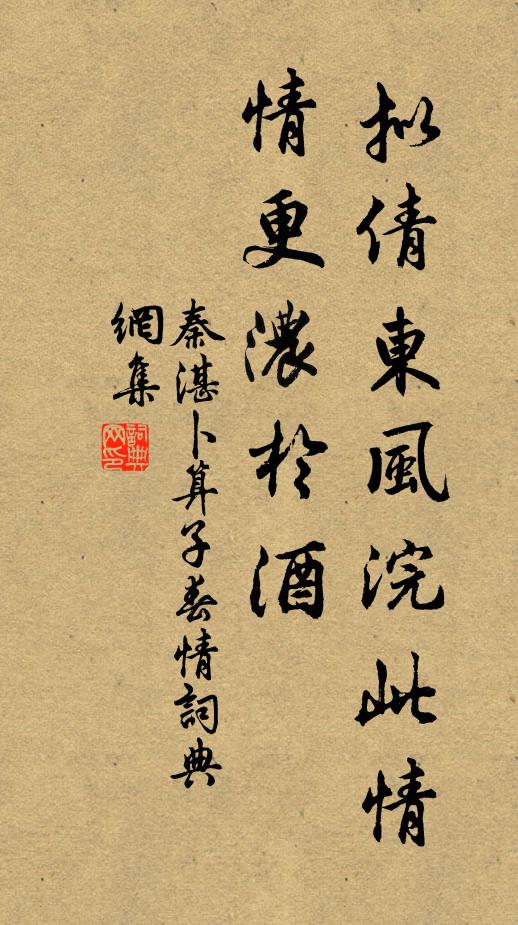 拟倩東風浣此情
情更濃於酒
秦湛卜算子春情詞典
網集
詞典網印